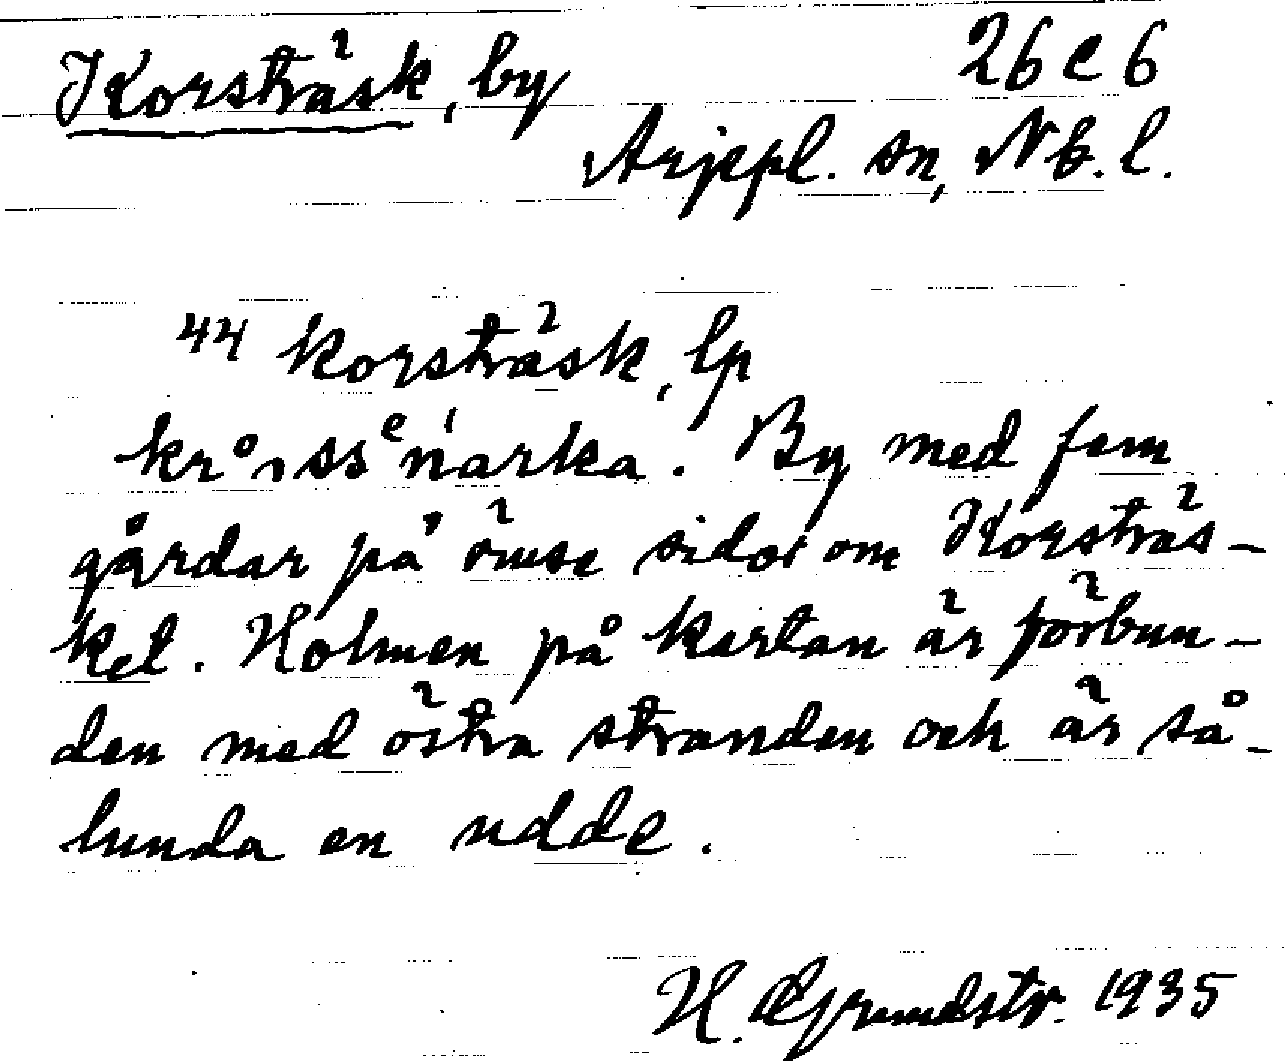 Korsträsk, by 26 e 6
Arjepl. sn, Nb. l.
44 korsträsk, lp
By med fem
gårdar på ömse sidor om Korsträs-
ket. Holmen på kartan är förbun-
den med östra stranden och är så-
lunda en udde.
H. Grundstr. 1935